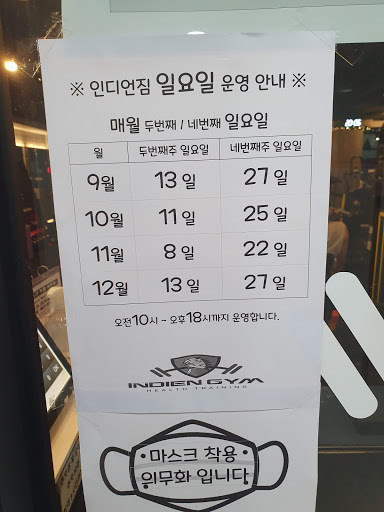 ※ 인디언짐 일요일 운영 안내 ※
매월 두번째 / 네번째 일요일
월 두번째주 일요일 네번째주 일요일
9월 13일 27일
10월 11일 25일
11월 8일 22일
12월 13일 27일
오전10시 ~ 오후18시까지 운영합니다.
INDIEN GYM
HEALTH TRAINING
· 마스크 착용 ·
의무화 입니다